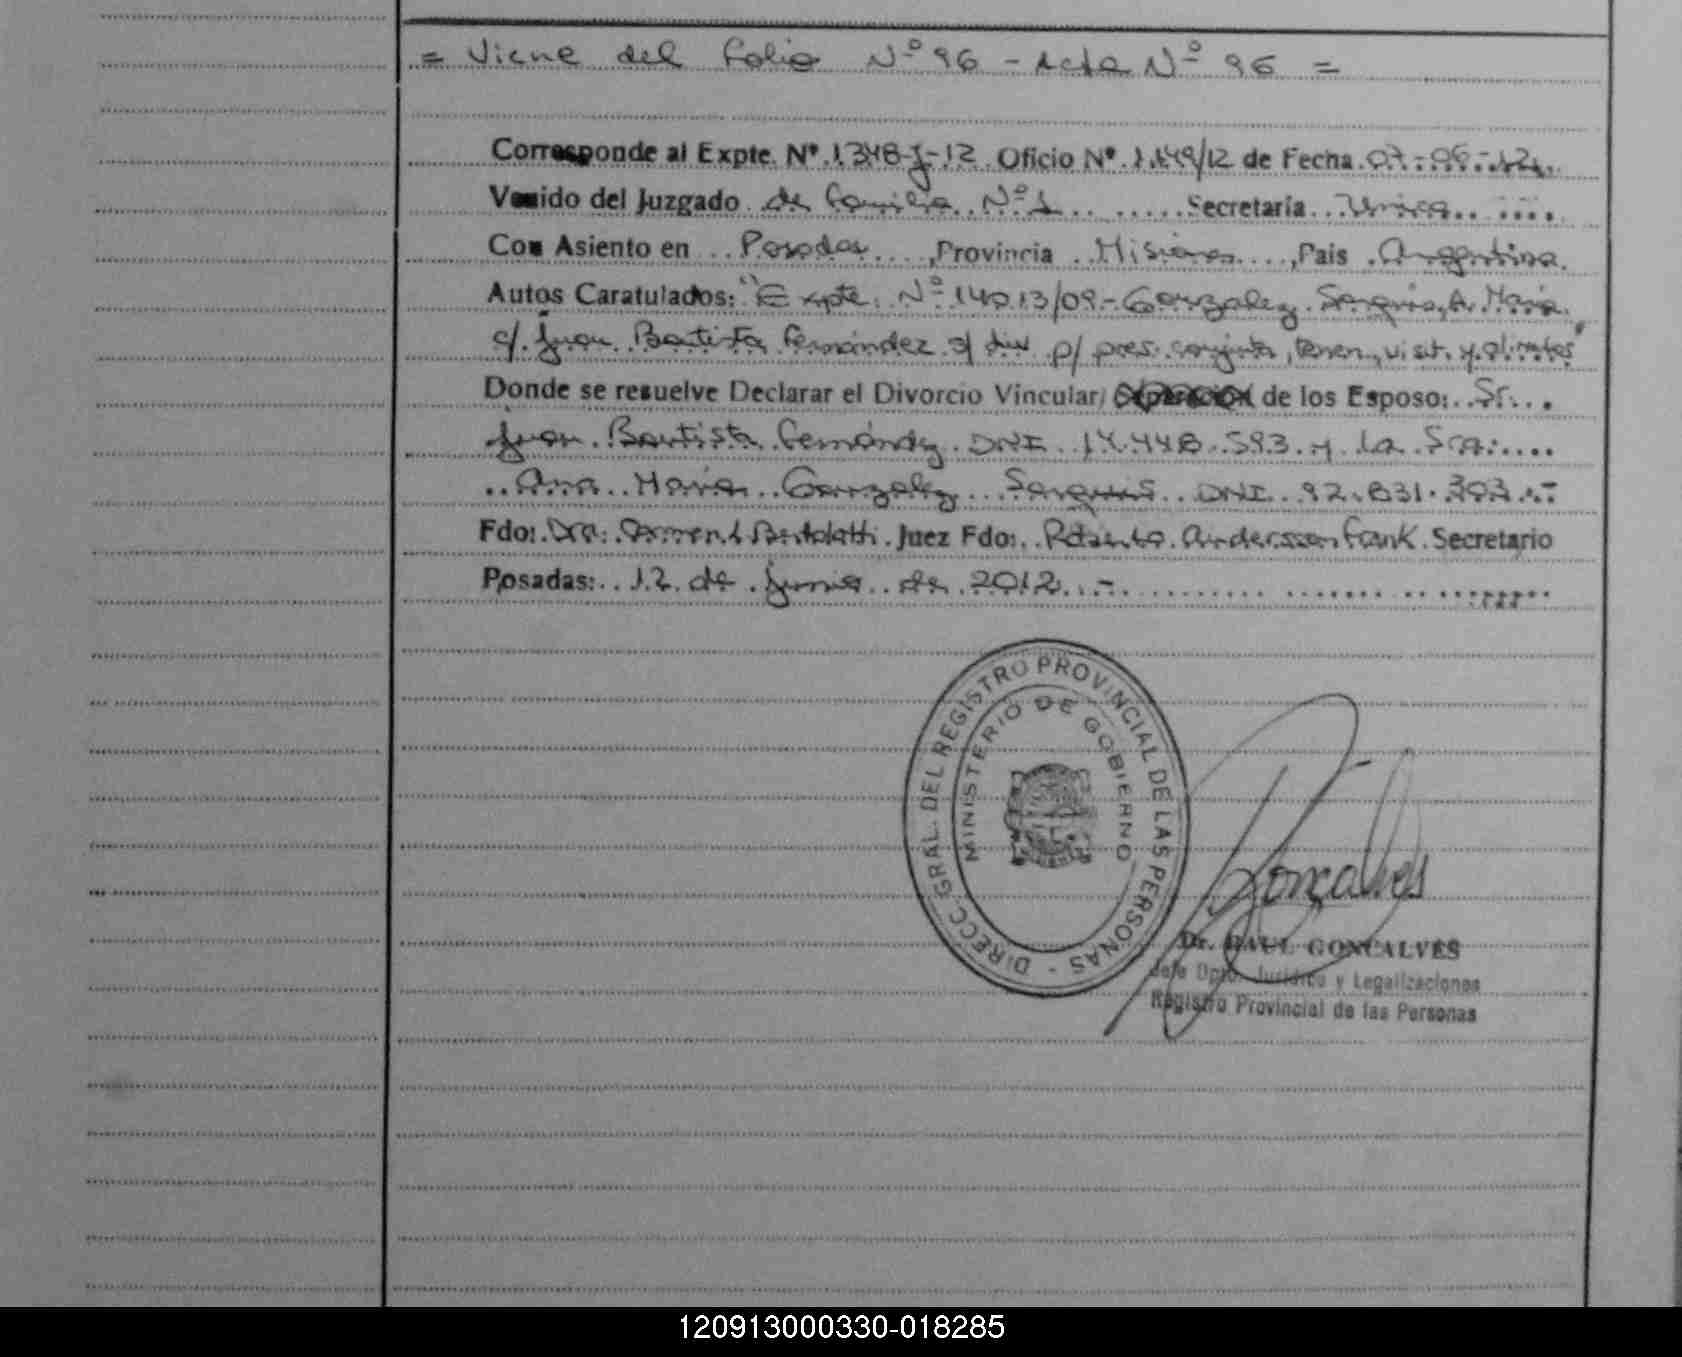 = Viene del Folio Nº 96 - Acta Nº 96 =
Corresponde al Expte. Nº 1348-J-12 Oficio Nº 1.149/12 de Fecha 07-06-12
Venido del Juzgado de Familia Nº 1 Secretaría Unica
Con Asiento en Posadas, Provincia Misiones, Pais Argentina
Autos Caratulados: "Expte. Nº 14013/09 - Gonzalez Sarquis, A. Maria
c/ Juan Bautista Fernández s/ div p/ pres. conjunta, tenen., visit. y alimentos"
Donde se resuelve Declarar el Divorcio Vincular/ Separación de los Esposo: Sr.
Juan Bautista Fernández DNI 14.448.593 y La Sra:
Ana Maria Gonzalez Sarquis DNI 92.831.303.-
Fdo: Dra: Carmen Bertolotti Juez Fdo: Anderssen Frank Secretario
Posadas: 12 de Junio de 2012.-
DIRECC. GRAL. DEL REGISTRO PROVINCIAL DE LAS PERSONAS -
MINISTERIO DE GOBIERNO
Gonçalves
Dr. RAUL GONCALVES
Jefe Dpto. Jurídico y Legalizaciones
Registro Provincial de las Personas
120913000330-018285